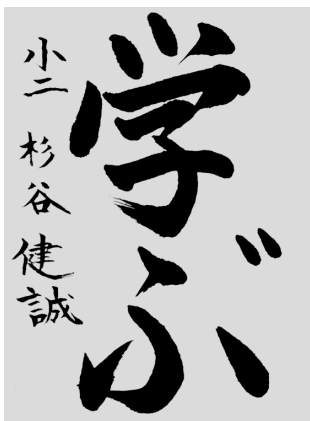 学ぶ
小二 杉谷健誠